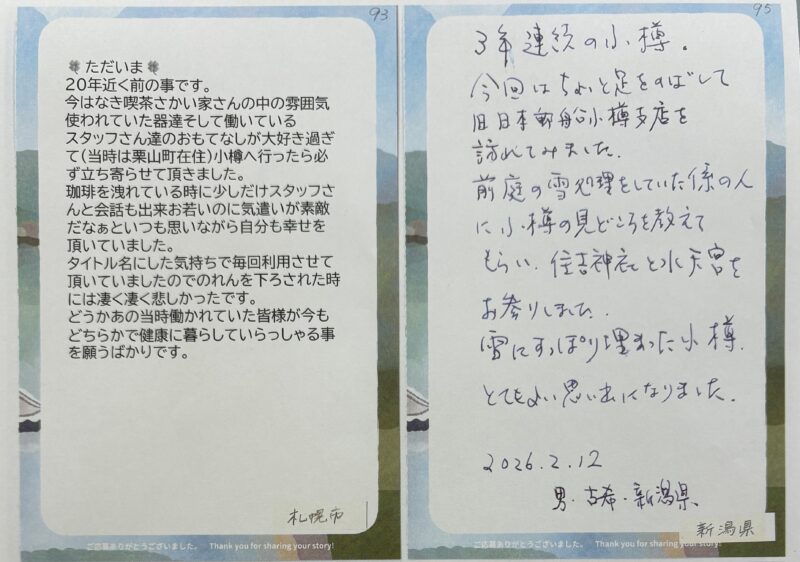 93
🍀 ただいま 🍀
20年近く前の事です。
今はなき喫茶さかい家さんの中の雰囲気
使われていた器達そして働いている
スタッフさん達のおもてなしが大好き過ぎ
て(当時は栗山町在住)小樽へ行ったら必
ず立ち寄らせて頂きました。
珈琲を洩れている時に少しだけスタッフさ
んと会話も出来お若いのに気遣いが素敵
だなぁといつも思いながら自分も幸せを
頂いていました。
タイトル名にした気持ちで毎回利用させて
頂いていましたのでのれんを下ろされた時
には凄く凄く悲しかったです。
どうかあの当時働かれていた皆様が今も
どちらかで健康に暮らしていらっしゃる事
を願うばかりです。
札幌市
ご応募ありがとうございました。 Thank you for sharing your story!
95
3年連続の小樽。
今回はちょっと足をのばして
旧日本郵船小樽支店を
訪れてみました。
前庭の雪処理をしていた係の人
に小樽の見どころを教えて
もらい、住吉神社と水天宮を
お参りしました。
雪にすっぽり埋まった小樽、
とてもよい思い出になりました。
2026.2.12
男・古希・新潟県
新潟県
ご応募ありがとうございました。 Thank you for sharing your story!